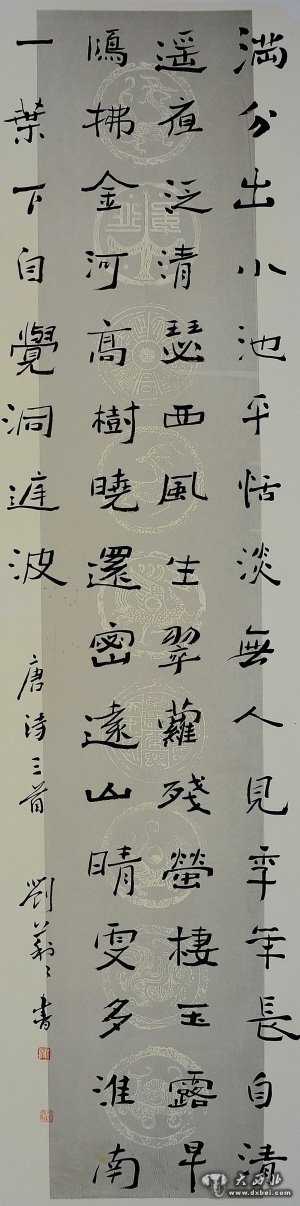 滿分出小池平恬淡無人見秊年長自清
遥夜泛清瑟西風生翠蘿殘螢棲玉露早
鴈拂金河高樹曉還密遠山晴更多淮南
一葉下自覺洞庭波
唐詩三首 劉 書
www.dxbei.com